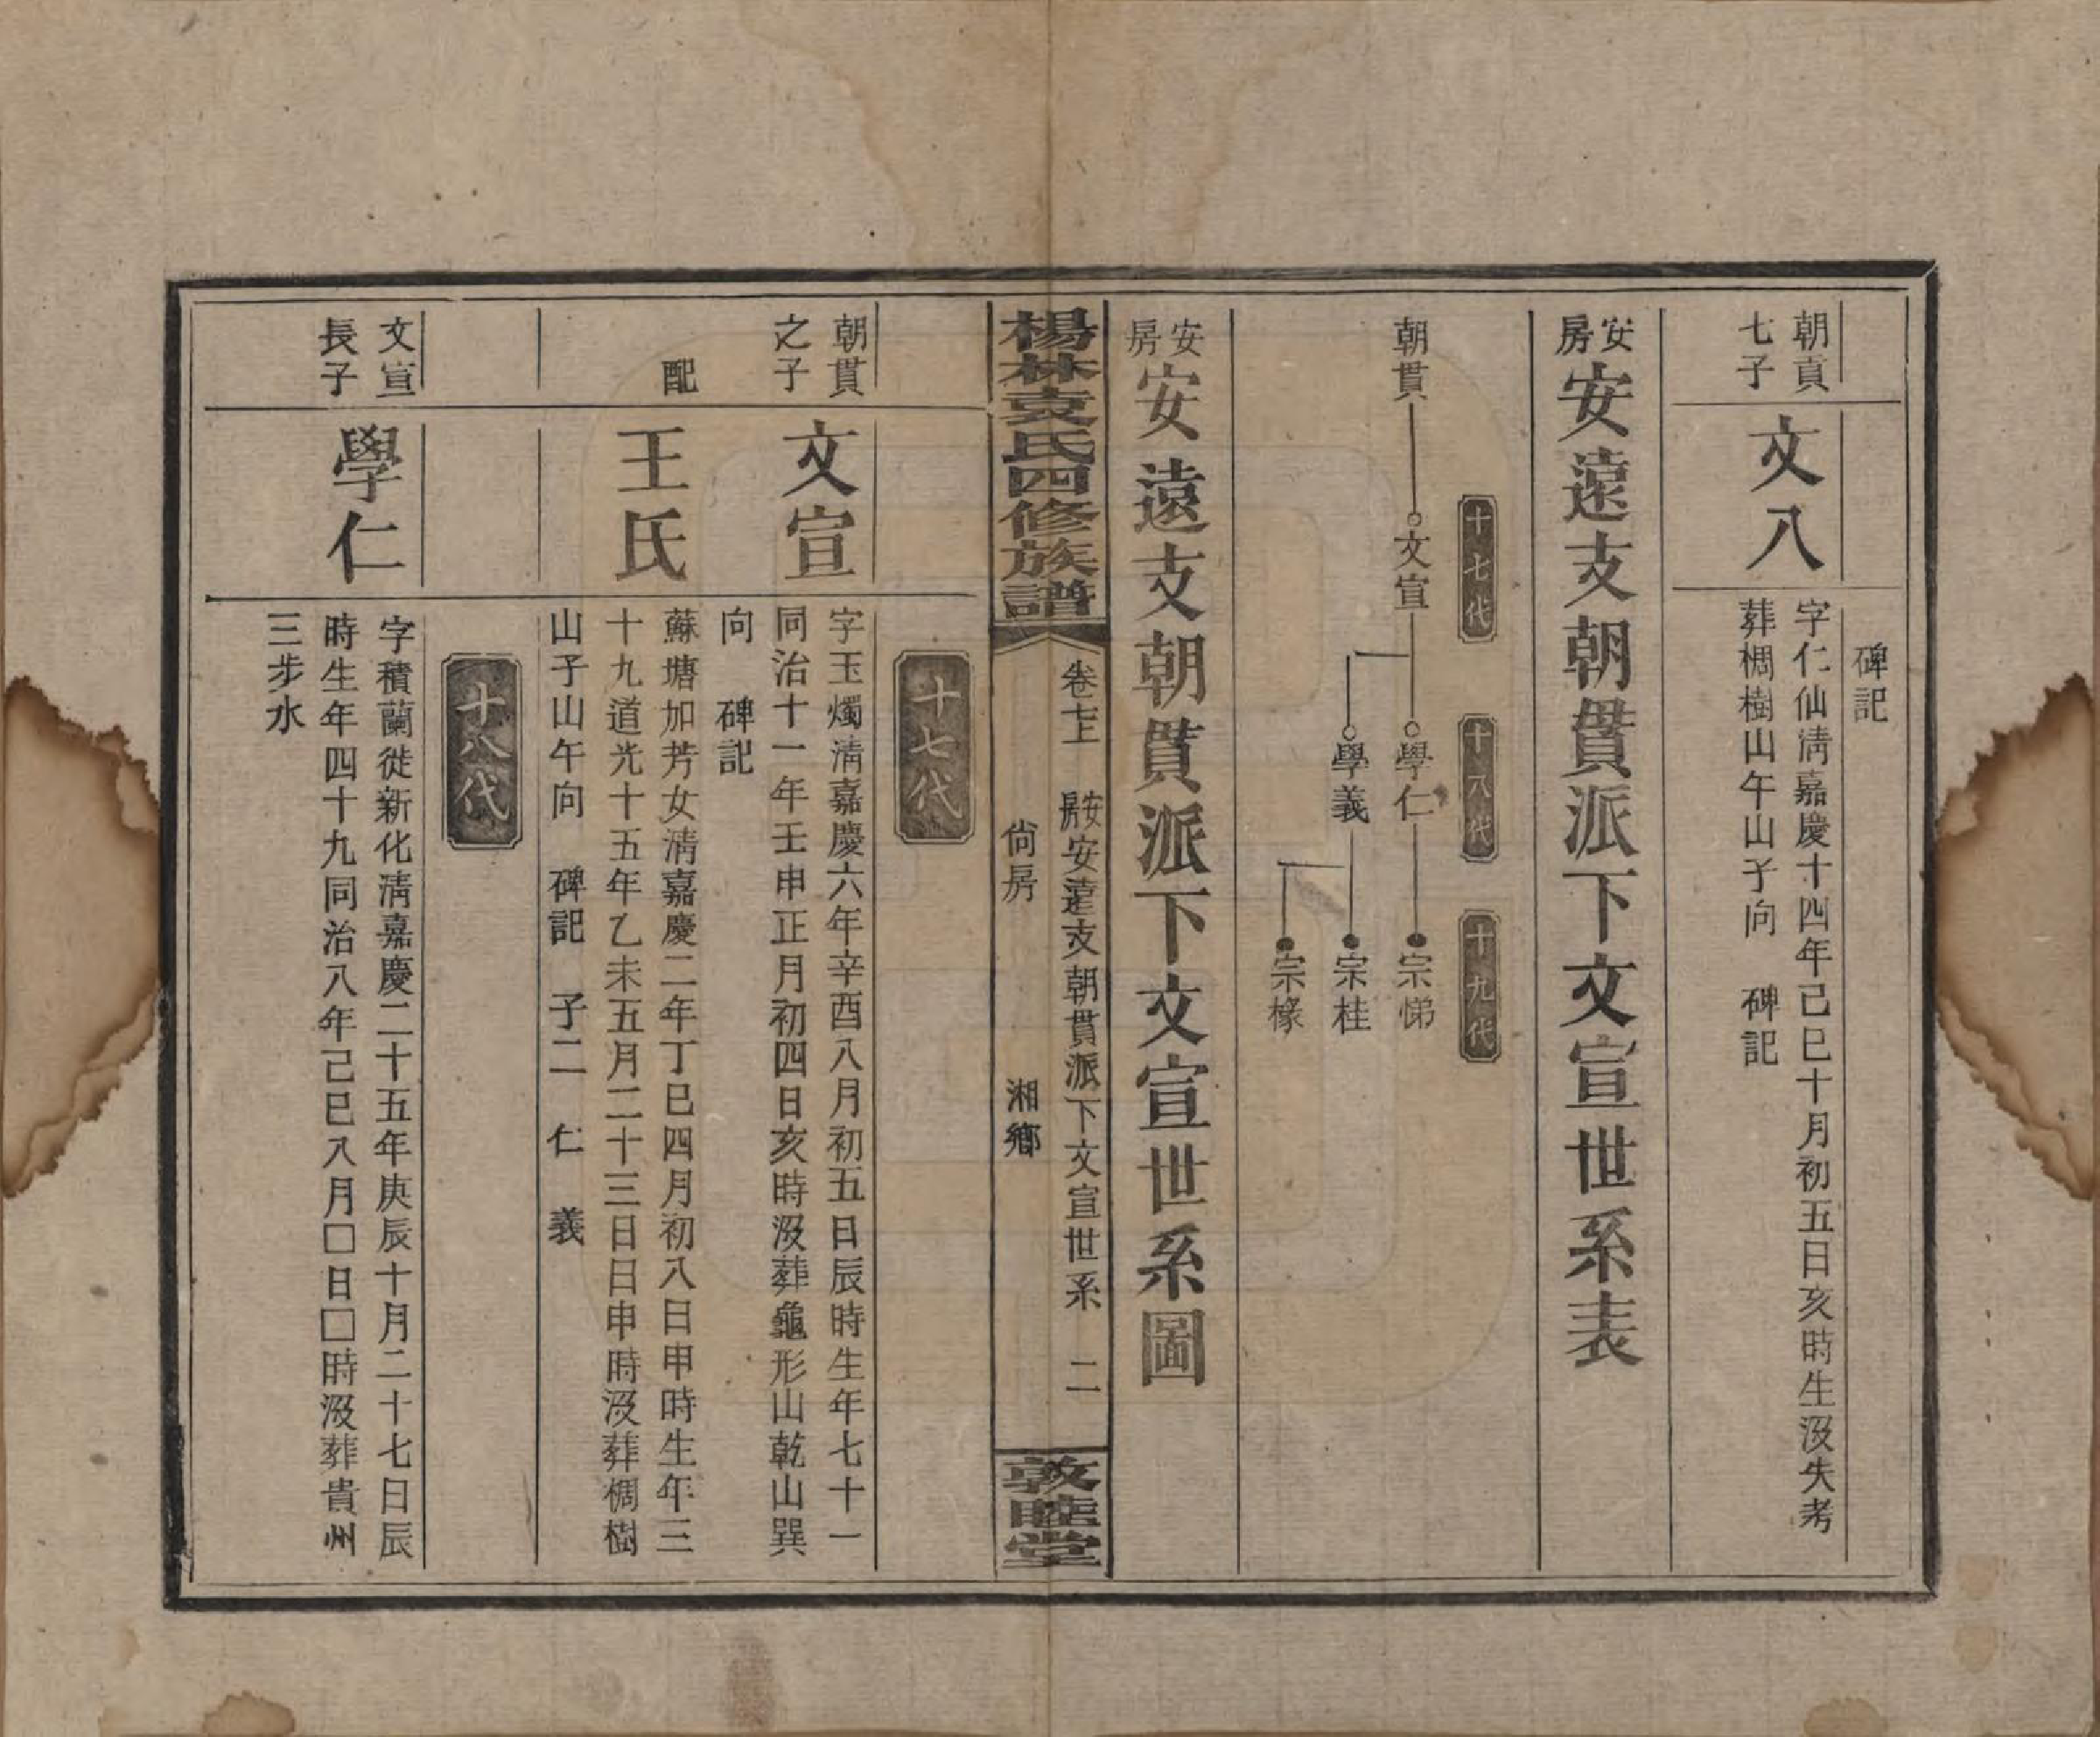 碑記
朝貢
七子
文八
字仁仙清嘉慶十四年己巳十月初五日亥時生沒失考
葬椆樹山午山子向　碑記
安房安遠支朝貫派下文宣世系表
十七代　十八代　十九代
朝貫　文宣　學仁　宗悌
學義　宗桂
宗椽
安房安遠支朝貫派下文宣世系圖
楊林袁氏四修族譜　卷七上　安房安遠支朝貫派下文宣世系　二
尙房　湘鄉
敦睦堂
十七代
朝貫
之子
文宣
字玉燭清嘉慶六年辛酉八月初五日辰時生年七十一
同治十一年壬申正月初四日亥時沒葬龜形山乾山巽
向　碑記
配
王氏
蘇塘加芳女清嘉慶二年丁巳四月初八日申時生年三
十九道光十五年乙未五月二十三日日申時沒葬椆樹
山子山午向　碑記　子二　仁　義
十八代
文宣
長子
學仁
字積蘭徙新化清嘉慶二十五年庚辰十月二十七日辰
時生年四十九同治八年己巳八月□日□時沒葬貴州
三步水